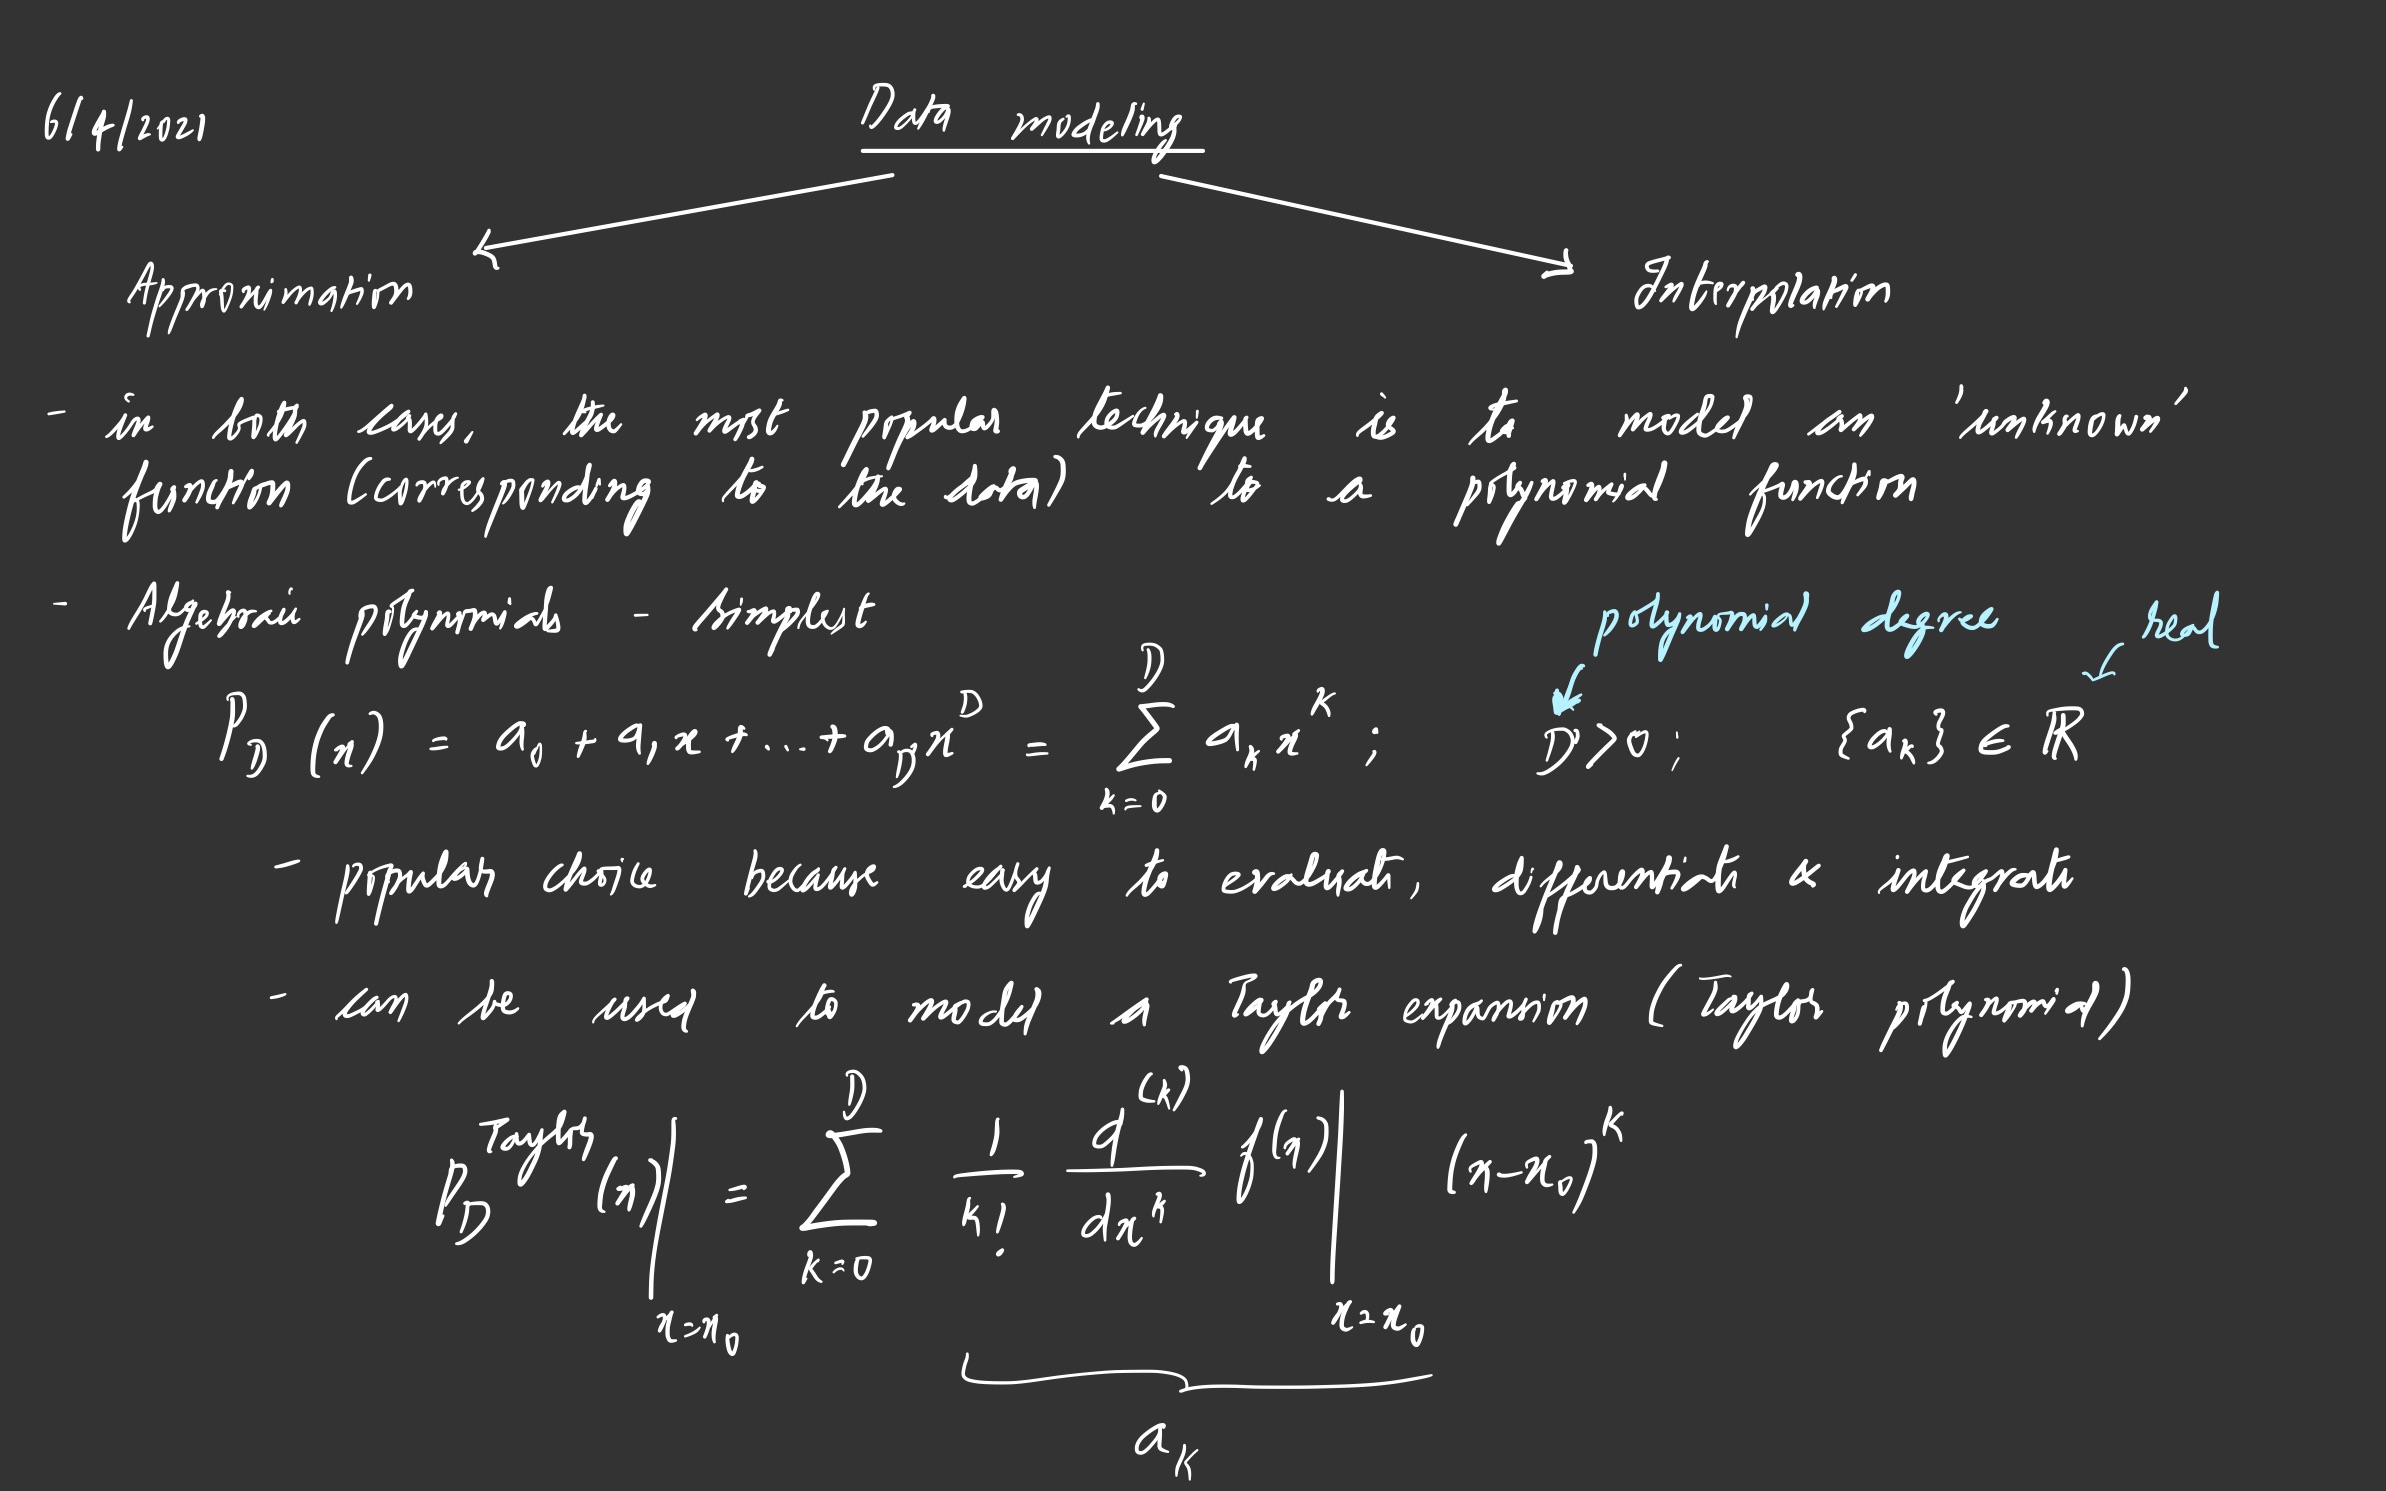 6/04/2021
Data modeling
Approximation
Interpolation
- in both cases, the most popular technique is to model an 'unknown'
function (corresponding to the data) to a polynomial function
- Algebraic polynomials - simplest
polynomial degree
real
P_D (x) = a_0 + a_1 x + ... + a_D x^D = \sum_{k=0}^{D} a_k x^k ; D>0 ; {a_k} ∈ ℝ
- popular choice because easy to evaluate, differentiate & integrate
- can be used to model a Taylor expansion (Taylor polynomial)
P_D^{Taylor} (x) |_{x=x_0} = \sum_{k=0}^{D} \frac{1}{k!} \frac{d^{(k)}}{dx^k} f(x) |_{x=x_0} (x-x_0)^k
a_k